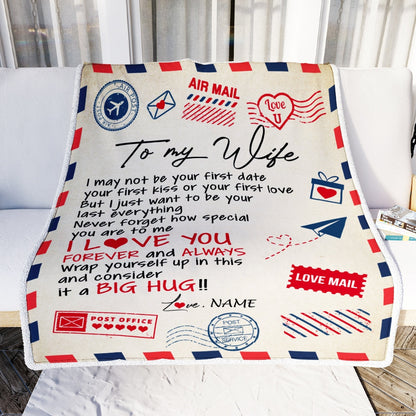 AIR MAIL
Love
U
To my Wife
I may not be your first date
your first kiss or your first love
But I just want to be your
last everything
Never forget how special
you are to me
I L♥VE YOU
FOREVER and ALWAYS
Wrap yourself up in this
and consider
it a BIG HUG!!
Love, NAME
LOVE MAIL
POST OFFICE
POST
SERVICE